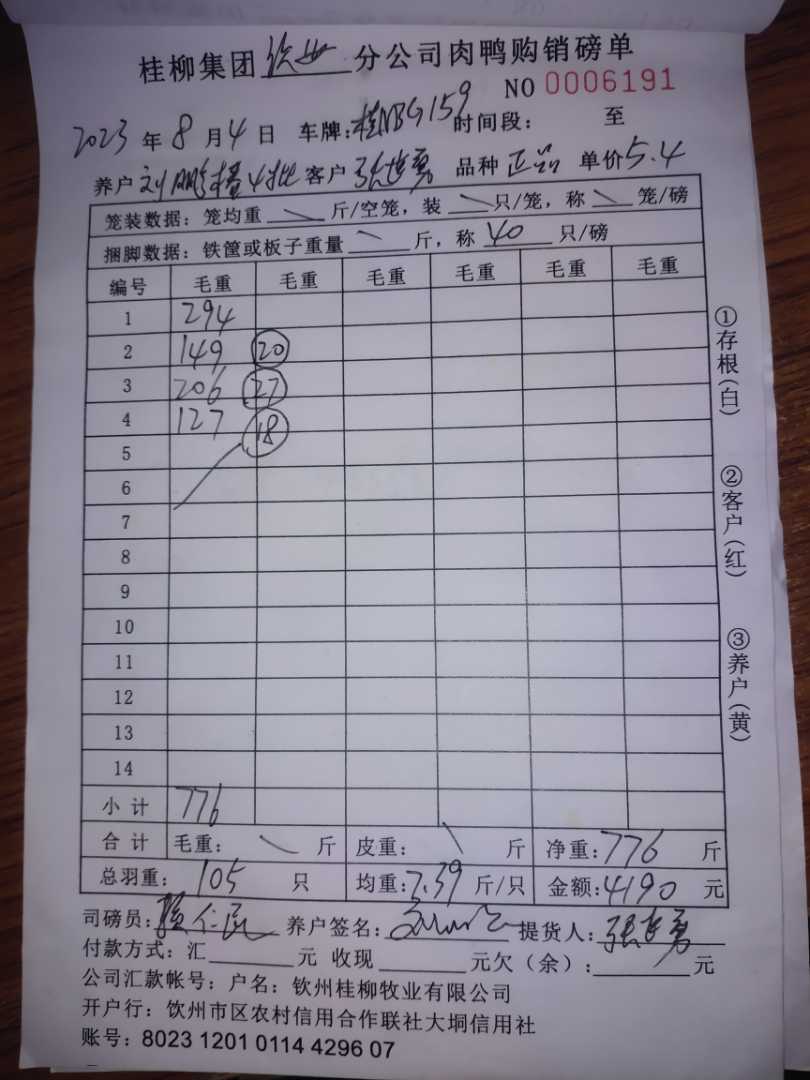 桂柳集团钦州分公司肉鸭购销磅单
NO 0006191
2023 年 8 月 4 日 车牌: 桂NBG159 时间段: 至
养户 刘鹏 4批 客户 张 勇 品种 正品 单价 5.4
笼装数据: 笼均重 \ 斤/空笼, 装 \ 只/笼, 称 \ 笼/磅
捆脚数据: 铁筐或板子重量 \ 斤, 称 40 只/磅
编号 毛重 毛重 毛重 毛重 毛重 毛重
1 294
2 149 20
3 206 27
4 127 18
5
6
7
8
9
10
11
12
13
14
小计 776
合计 毛重: \ 斤 皮重: \ 斤 净重: 776 斤
总羽重: 105 只 均重: 7.39 斤/只 金额: 4190 元
司磅员: 仁 养户签名: 提货人: 张 勇
付款方式: 汇 元 收现 元欠(余): 元
公司汇款帐号: 户名: 钦州桂柳牧业有限公司
开户行: 饮州市区农村信用合作联社大垌信用社
账号: 8023 1201 0114 4296 07
①存根(白)
②客户(红)
③养户(黄)